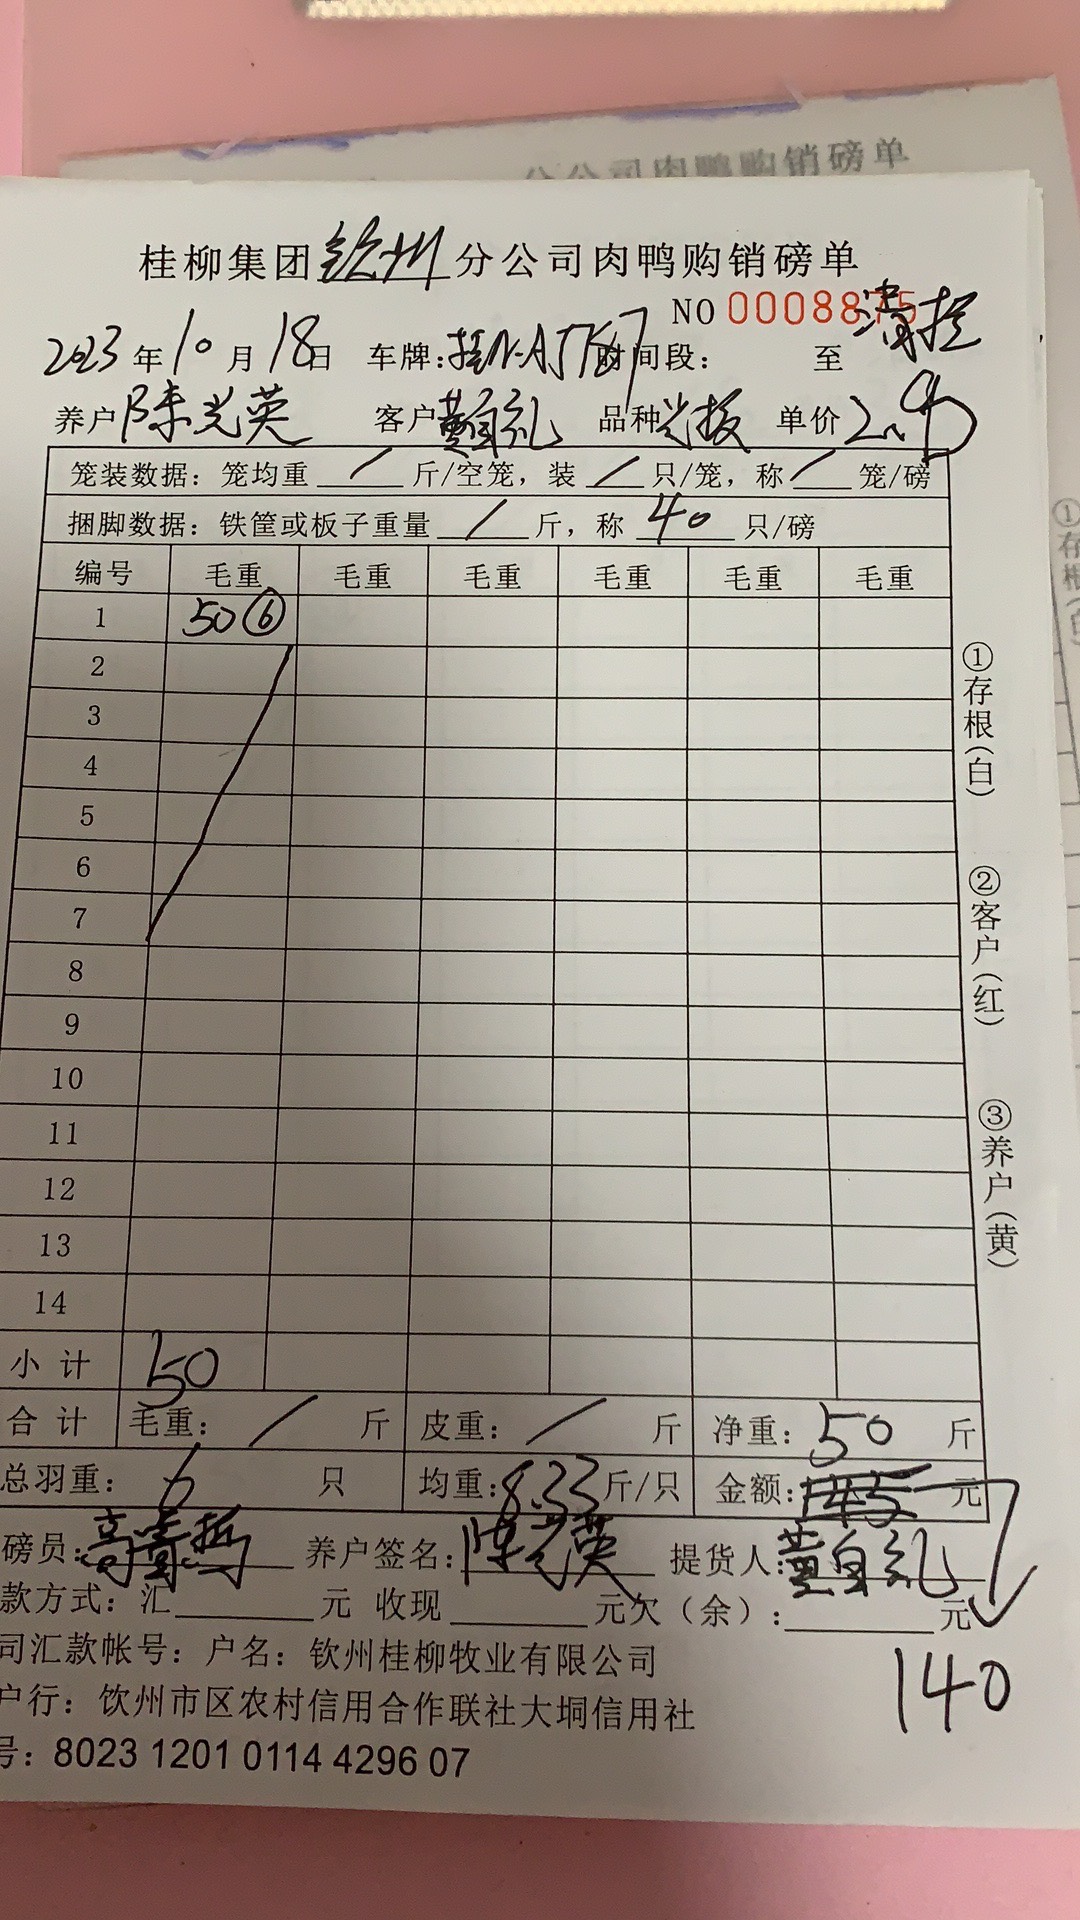 分公司肉鸭购销磅单
桂柳集团钦州分公司肉鸭购销磅单
NO 0008875
清栏
2023年10月18日 车牌: 时间段: 至
养户 陈光英 客户 黄自礼 品种 光板 单价
笼装数据:笼均重 / 斤/空笼,装 / 只/笼,称 / 笼/磅
捆脚数据:铁筐或板子重量 / 斤,称 40 只/磅
编号 毛重 毛重 毛重 毛重 毛重 毛重
1 50⑥
2
3
4
5
6
7
8
9
10
11
12
13
14
小计 50
合计 毛重: / 斤 皮重: / 斤 净重:50 斤
总羽重:6 只 均重:8.33斤/只 金额: 元
磅员: 养户签名:陈光英 提货人:黄自礼
款方式:汇 元 收现 元欠(余): 元
140
司汇款帐号:户名:钦州桂柳牧业有限公司
户行:饮州市区农村信用合作联社大垌信用社
号:8023 1201 0114 4296 07
①存根(白)
②客户(红)
③养户(黄)